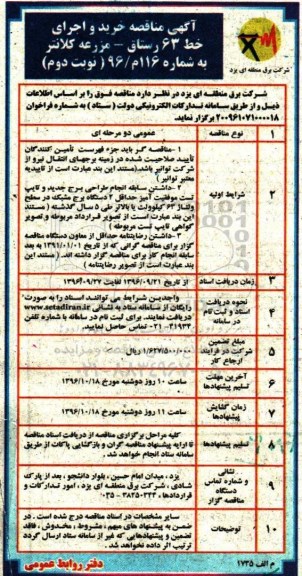 آگهی مناقصه خرید و اجرای
خط ۶۳ رستاق - مزرعه کلانتر
به شماره ۱۱۶م/۹۶ ( نوبت دوم)
شرکت برق منطقه ای یزد
شرکت برق منطقه ای یزد در نظر دارد مناقصه فوق را بر اساس اطلاعات
ذیل و از طریق سامانه تدارکات الکترونیکی دولت ( ستاد ) به شماره فراخوان
۲۰۰۹۶۱۰۷۱۰۰۰۰۱۸ برگزار نماید.
۱ نوع مناقصه عمومی دو مرحله ای
۲ شرایط اولیه
۱- مناقصه گر باید جزء فهرست تأمین کنندگان
تأیید صلاحیت شده در زمینه برجهای انتقال نیرو از
شرکت توانیر باشد.(مستند این بند عبارت است از تاییدیه
معتبر توانیر )
۲- داشتن سابقه انجام طراحی برج جدید و تایپ
تست موفقیت آمیز حداقل ۲ دستگاه برج مشبک در سطح
ولتاژ ۶۳ کیلوولت یا بالاتر طی ۵ سال گذشته ( مستند
این بند عبارت است از تصویر قرارداد مربوطه و تصویر
گواهی تایپ تست مربوطه )
۳- داشتن رضایتنامه حداقل از معاون دستگاه مناقصه
گزار برای مناقصه گرانی که از تاریخ ۱۳۹۱/۰۱/۰۱ به بعد
سابقه انجام کار برای مناقصه گزار داشته اند. ( مستند این
بند عبارت است از تصویر رضایتنامه )
۳ زمان دریافت اسناد از تاریخ ۱۳۹۶/۰۹/۲۱ لغایت ۱۳۹۶/۰۹/۲۷
۴ نحوه دریافت اسناد و ثبت نام در سامانه
واجدین شرایط می توانند اسناد را به صورت
رایگان از سامانه ستاد به نشانی www.setadiran.ir
دریافت نمایند. برای ثبت نام در سامانه با شماره تلفن
۴۱۹۳۴-۰۲۱ تماس حاصل نمایید.
۵ مبلغ تضمین شرکت در فرایند ارجاع کار ۱/۶۲۷/۵۰۰/۰۰۰ ریال
۶ آخرین مهلت تسلیم پیشنهادها ساعت ۱۰ روز دوشنبه مورخ ۱۳۹۶/۱۰/۱۸
۷ زمان گشایش پیشنهادها ساعت ۱۱ روز دوشنبه مورخ ۱۳۹۶/۱۰/۱۸
۸ تسلیم پیشنهادها
کلیه مراحل برگزاری مناقصه از دریافت اسناد مناقصه
تا ارایه پیشنهاد مناقصه گران و بازگشایی پاکات از طریق
سامانه ستاد انجام خواهد شد.
۹ نشانی و شماره تماس دستگاه مناقصه گزار
یزد ، میدان امام حسین ، بلوار دانشجو ، بعد از پارک
شادی ، شرکت برق منطقه ای یزد ، امور تدارکات و
قراردادها ،
۱۰ توضیحات
سایر مشخصات در اسناد مناقصه درج شده است . در
ضمن به پیشنهاد های مبهم ، مشروط ، مخدوش ، فاقد
تضمین و پیشنهادهایی که غیر از سامانه ستاد ارسال گردد
ترتیب اثر داده نخواهد شد .
دفتر روابط عمومی
م الف ۱۷۳۵